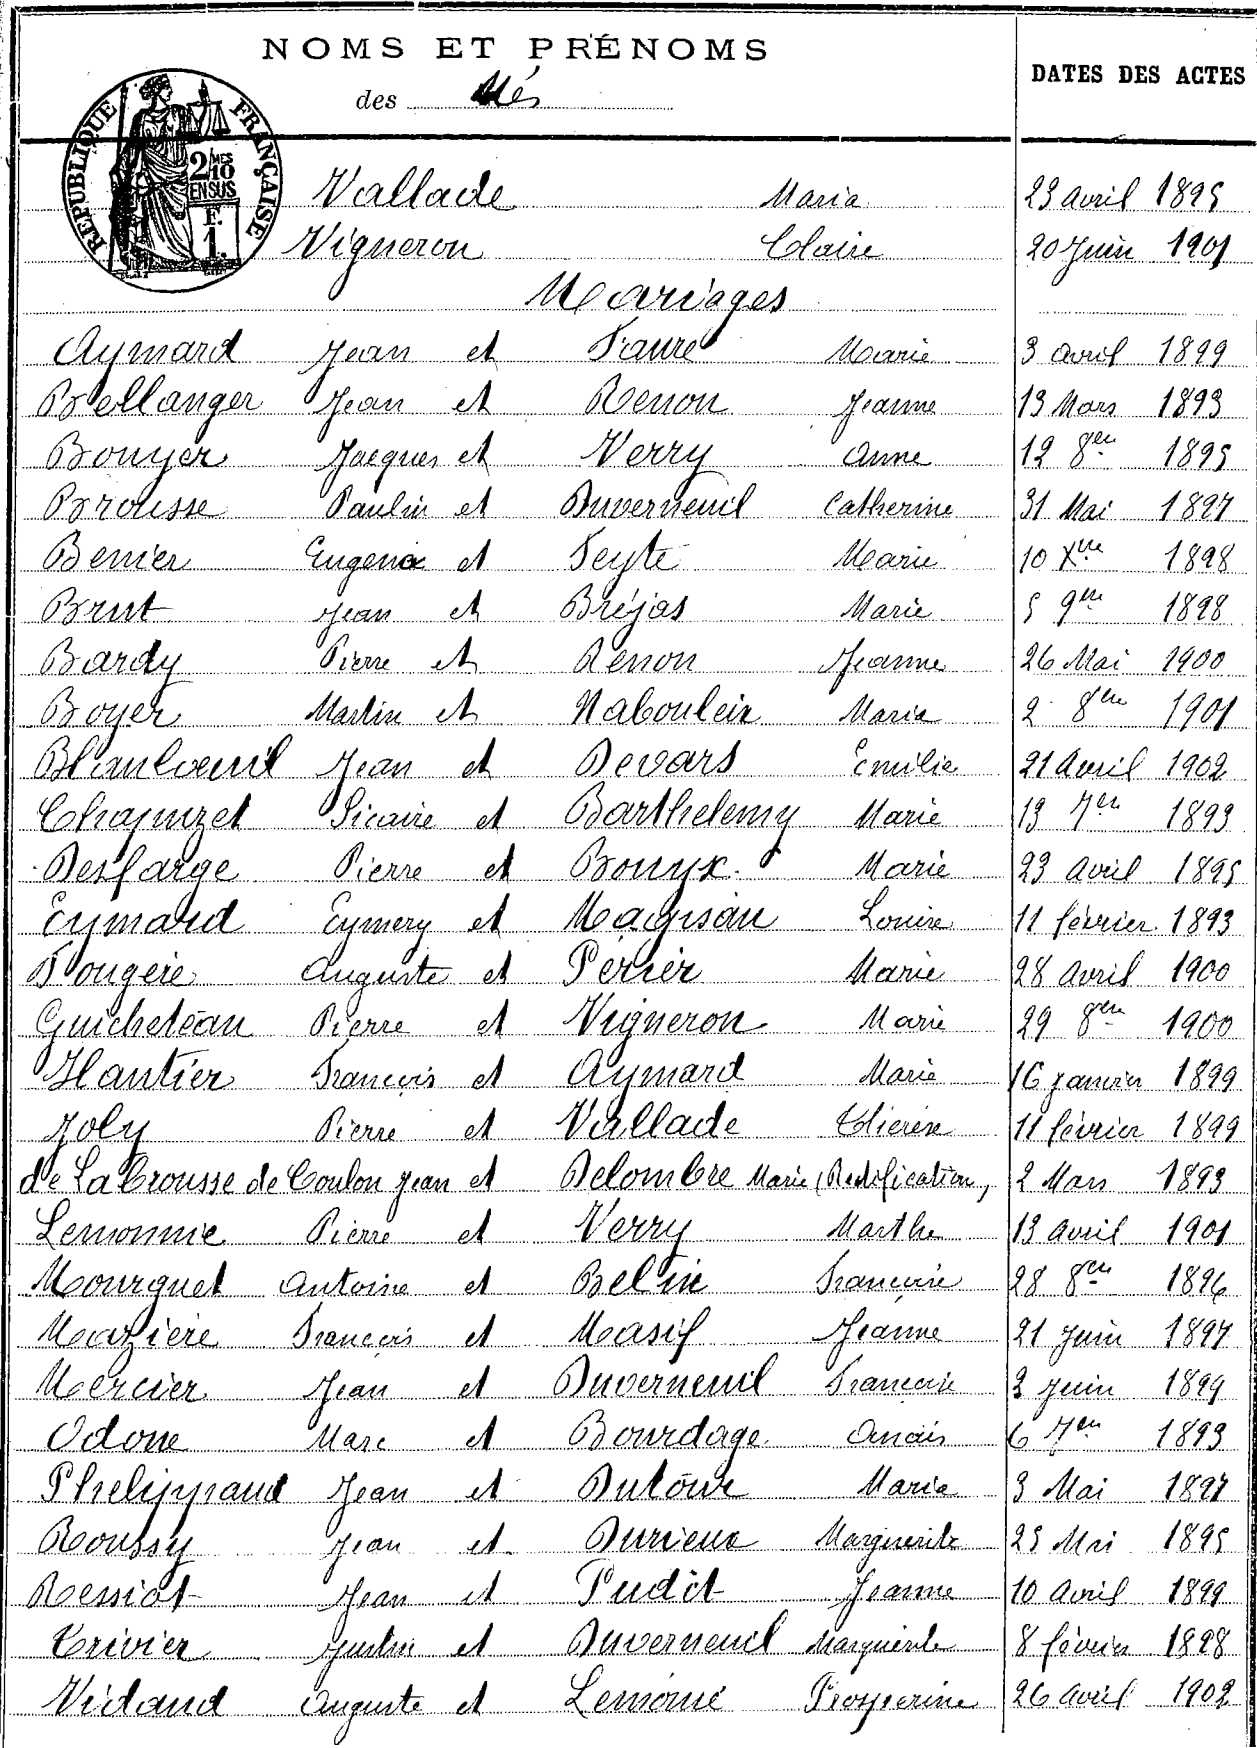 NOMS ET PRÉNOMS
des Nés
DATES DES ACTES
RÉPUBLIQUE FRANÇAISE
2/10 MES
EN SUS
F.
1.
Vallade Maria 23 avril 1895
Vigneron Claire 20 Juin 1901
Mariages
Aymard Jean et Faure Marie 3 avril 1899
Bellanger Jean et Renon Jeanne 13 Mars 1893
Bouyer Jacques et Verry Anne 12 8bre 1895
Brousse Paulin et Duverneuil Catherine 31 Mai 1897
Benier Eugène et Teyte Marie 10 Xbre 1898
Brut Jean et Bréjas Marie 5 9bre 1898
Bardy Pierre et Renon Jeanne 26 Mai 1900
Boyer Martin et Nabouleix Maria 2 8bre 1901
Blanloeuil Jean et Devars Emilie 21 avril 1902
Chapuzet Sicaire et Barthelemy Marie 13 7bre 1893
Desfarge Pierre et Bouyx Marie 23 avril 1895
Eymard Eymery et Magisan Louise 11 février 1893
Fougère Auguste et Perier Marie 28 avril 1900
Guicheteau Pierre et Vigneron Marie 29 8bre 1900
Hantier François et Aymard Marie 16 janvier 1899
Joly Pierre et Vallade Thérèse 11 février 1899
de La Crousse de Coulon Jean et Delombre Marie (Rectification) 2 Mars 1893
Lemonnie Pierre et Verry Marthe 13 avril 1901
Mourguet Antoine et Belin Françoise 28 8bre 1896
Mazière François et Masif Jeanne 21 juin 1897
Mercier Jean et Duverneuil Françoise 2 juin 1899
Odone Marc et Bourdage Anaïs 6 7bre 1893
Phelippaud Jean et Dutour Maria 3 Mai 1897
Roussy Jean et Durieux Marguerite 25 Mai 1895
Ressiot Jean et Pudit Jeanne 10 avril 1899
Trivier Justin et Duverneuil Marguerite 8 février 1898
Vidaud Auguste et Lemoine Prosperine 26 avril 1902